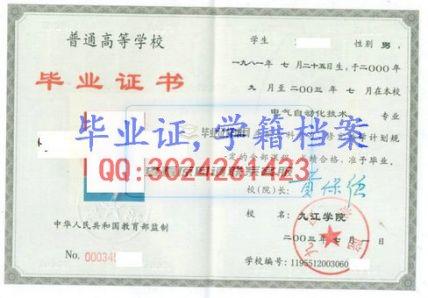 普通高等学校
毕业证书
中华人民共和国教育部监制
No. 00034
学生
性别 男，
一九八一年 七 月二十五日生，于二〇〇〇年
九 月至二〇〇三年 七 月在本校
电气自动化技术 专业
计划规
定的全部课程
合格，准予毕业。
毕业证,学籍档案
QQ:3024261423
校(院)长：
校 名：九江学院
二〇〇三年 七 月 一 日
学校编号：1195512003060